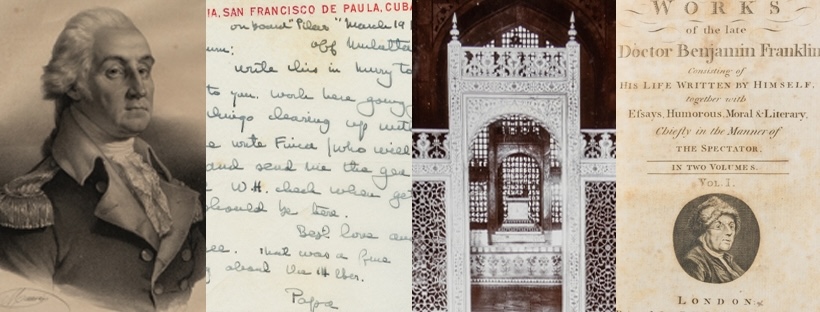 IA, SAN FRANCISCO DE PAULA, CUBA
on board "Pilar" March 19
off
write this in hurry to
to you. Work here going
things clearing up
write Finca (who will
and send me the
W.H. check when get
should be there.
Best love
That was a fine
about the
Papa
WORKS
of the late
Doctor Benjamin Franklin
Consisting of
HIS LIFE WRITTEN BY HIMSELF,
together with
Eſsays, Humorous, Moral & Literary,
Chiefly in the Manner of
THE SPECTATOR.
IN TWO VOLUMES.
VOL. I.
LONDON: